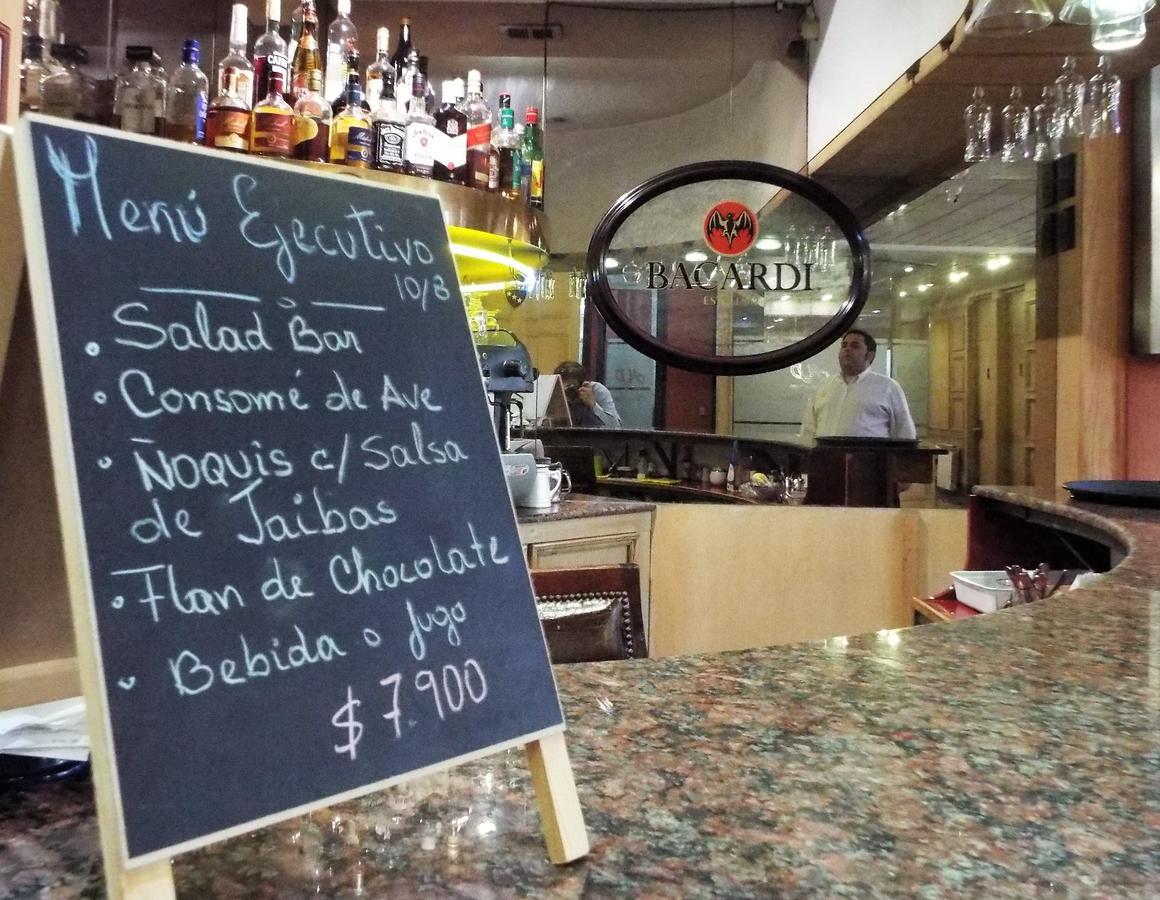 Menú Ejecutivo
10/3
• Salad Bar
• Consomé de Ave
• Ñoquis c/ Salsa
de Jaibas
• Flan de Chocolate
• Bebida o jugo
$7.900
BACARDI